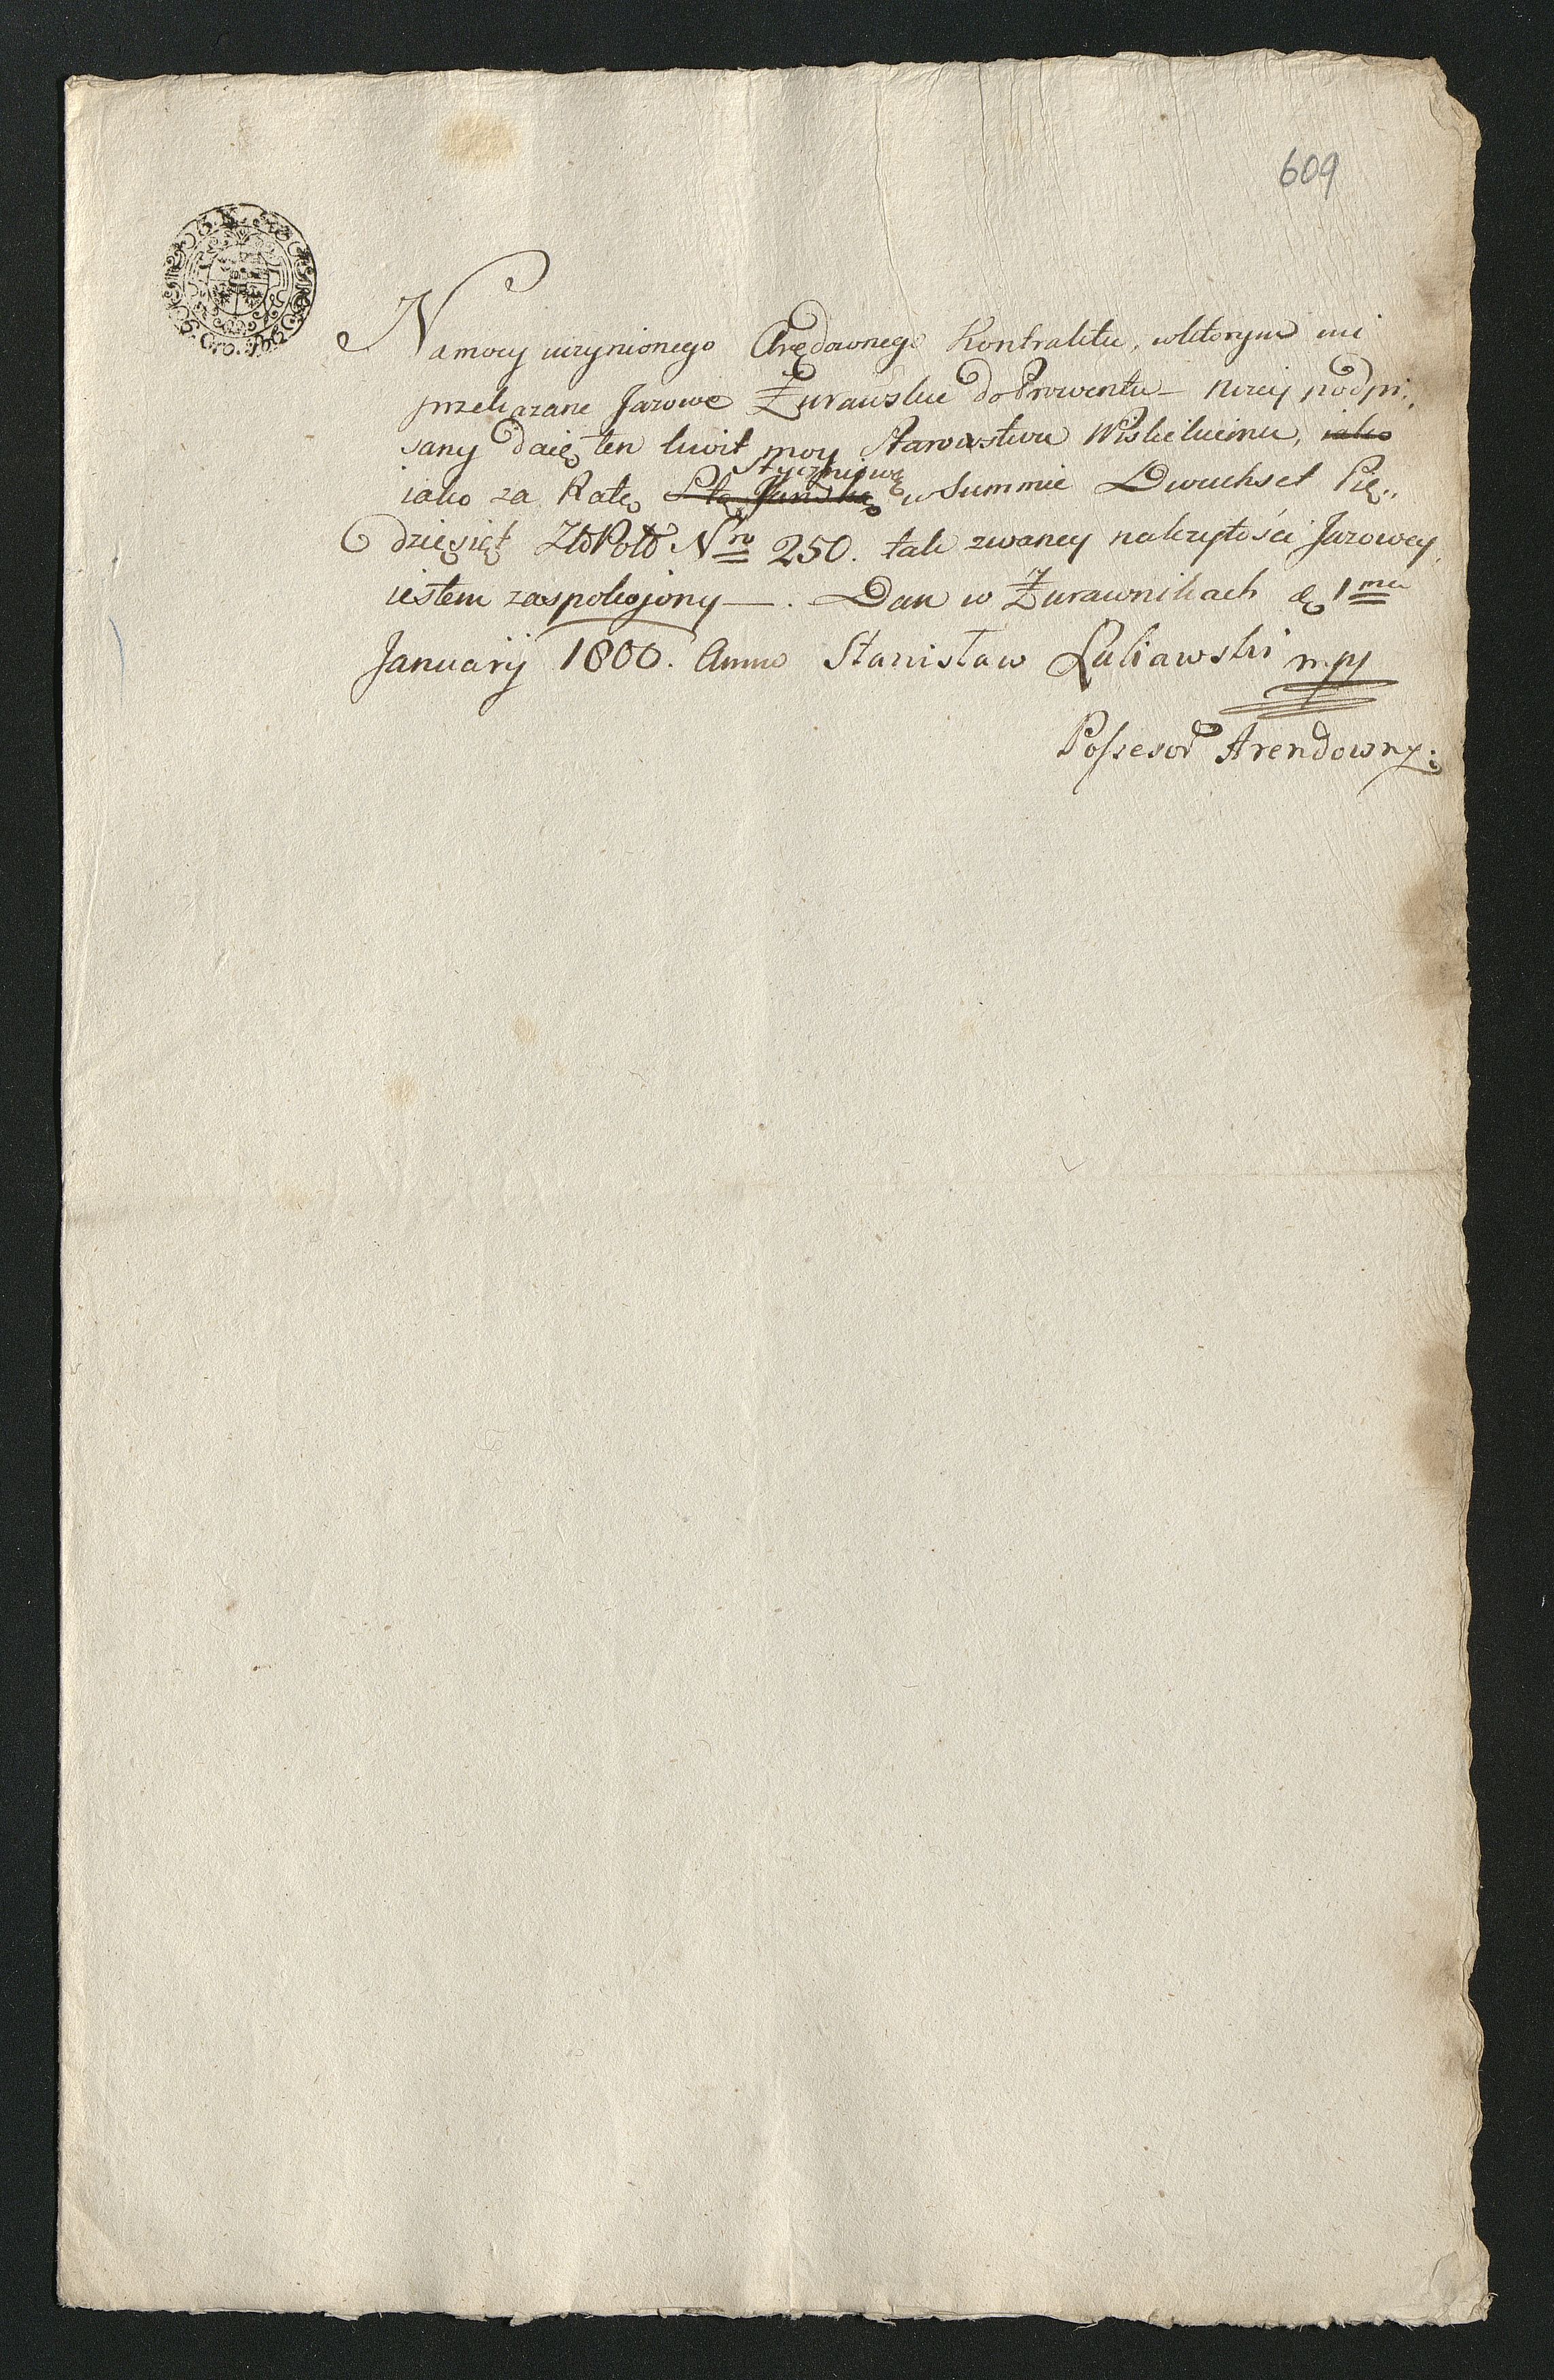 609
Na mocy uczynionego Arędownego Kontraktu, wktorym mi
przekazane Jazowe Żurawskie do Prowentu – niżej podpi„
sany daię ten kwit moy Starostwu Wiskickiemu, iako
Styczniową
iako za Ratę S-tą Jańską w Summie Dwuchset Pię„
dziesięt ZłoPol Nro 250. tak zwaney należytości Jazowey,
iestem zaspokojony —. Dan w Żurawnikach d 1ma
Januarij 1800. Anno Stanisław Kuliawski mpp
Possesor Arendowny.